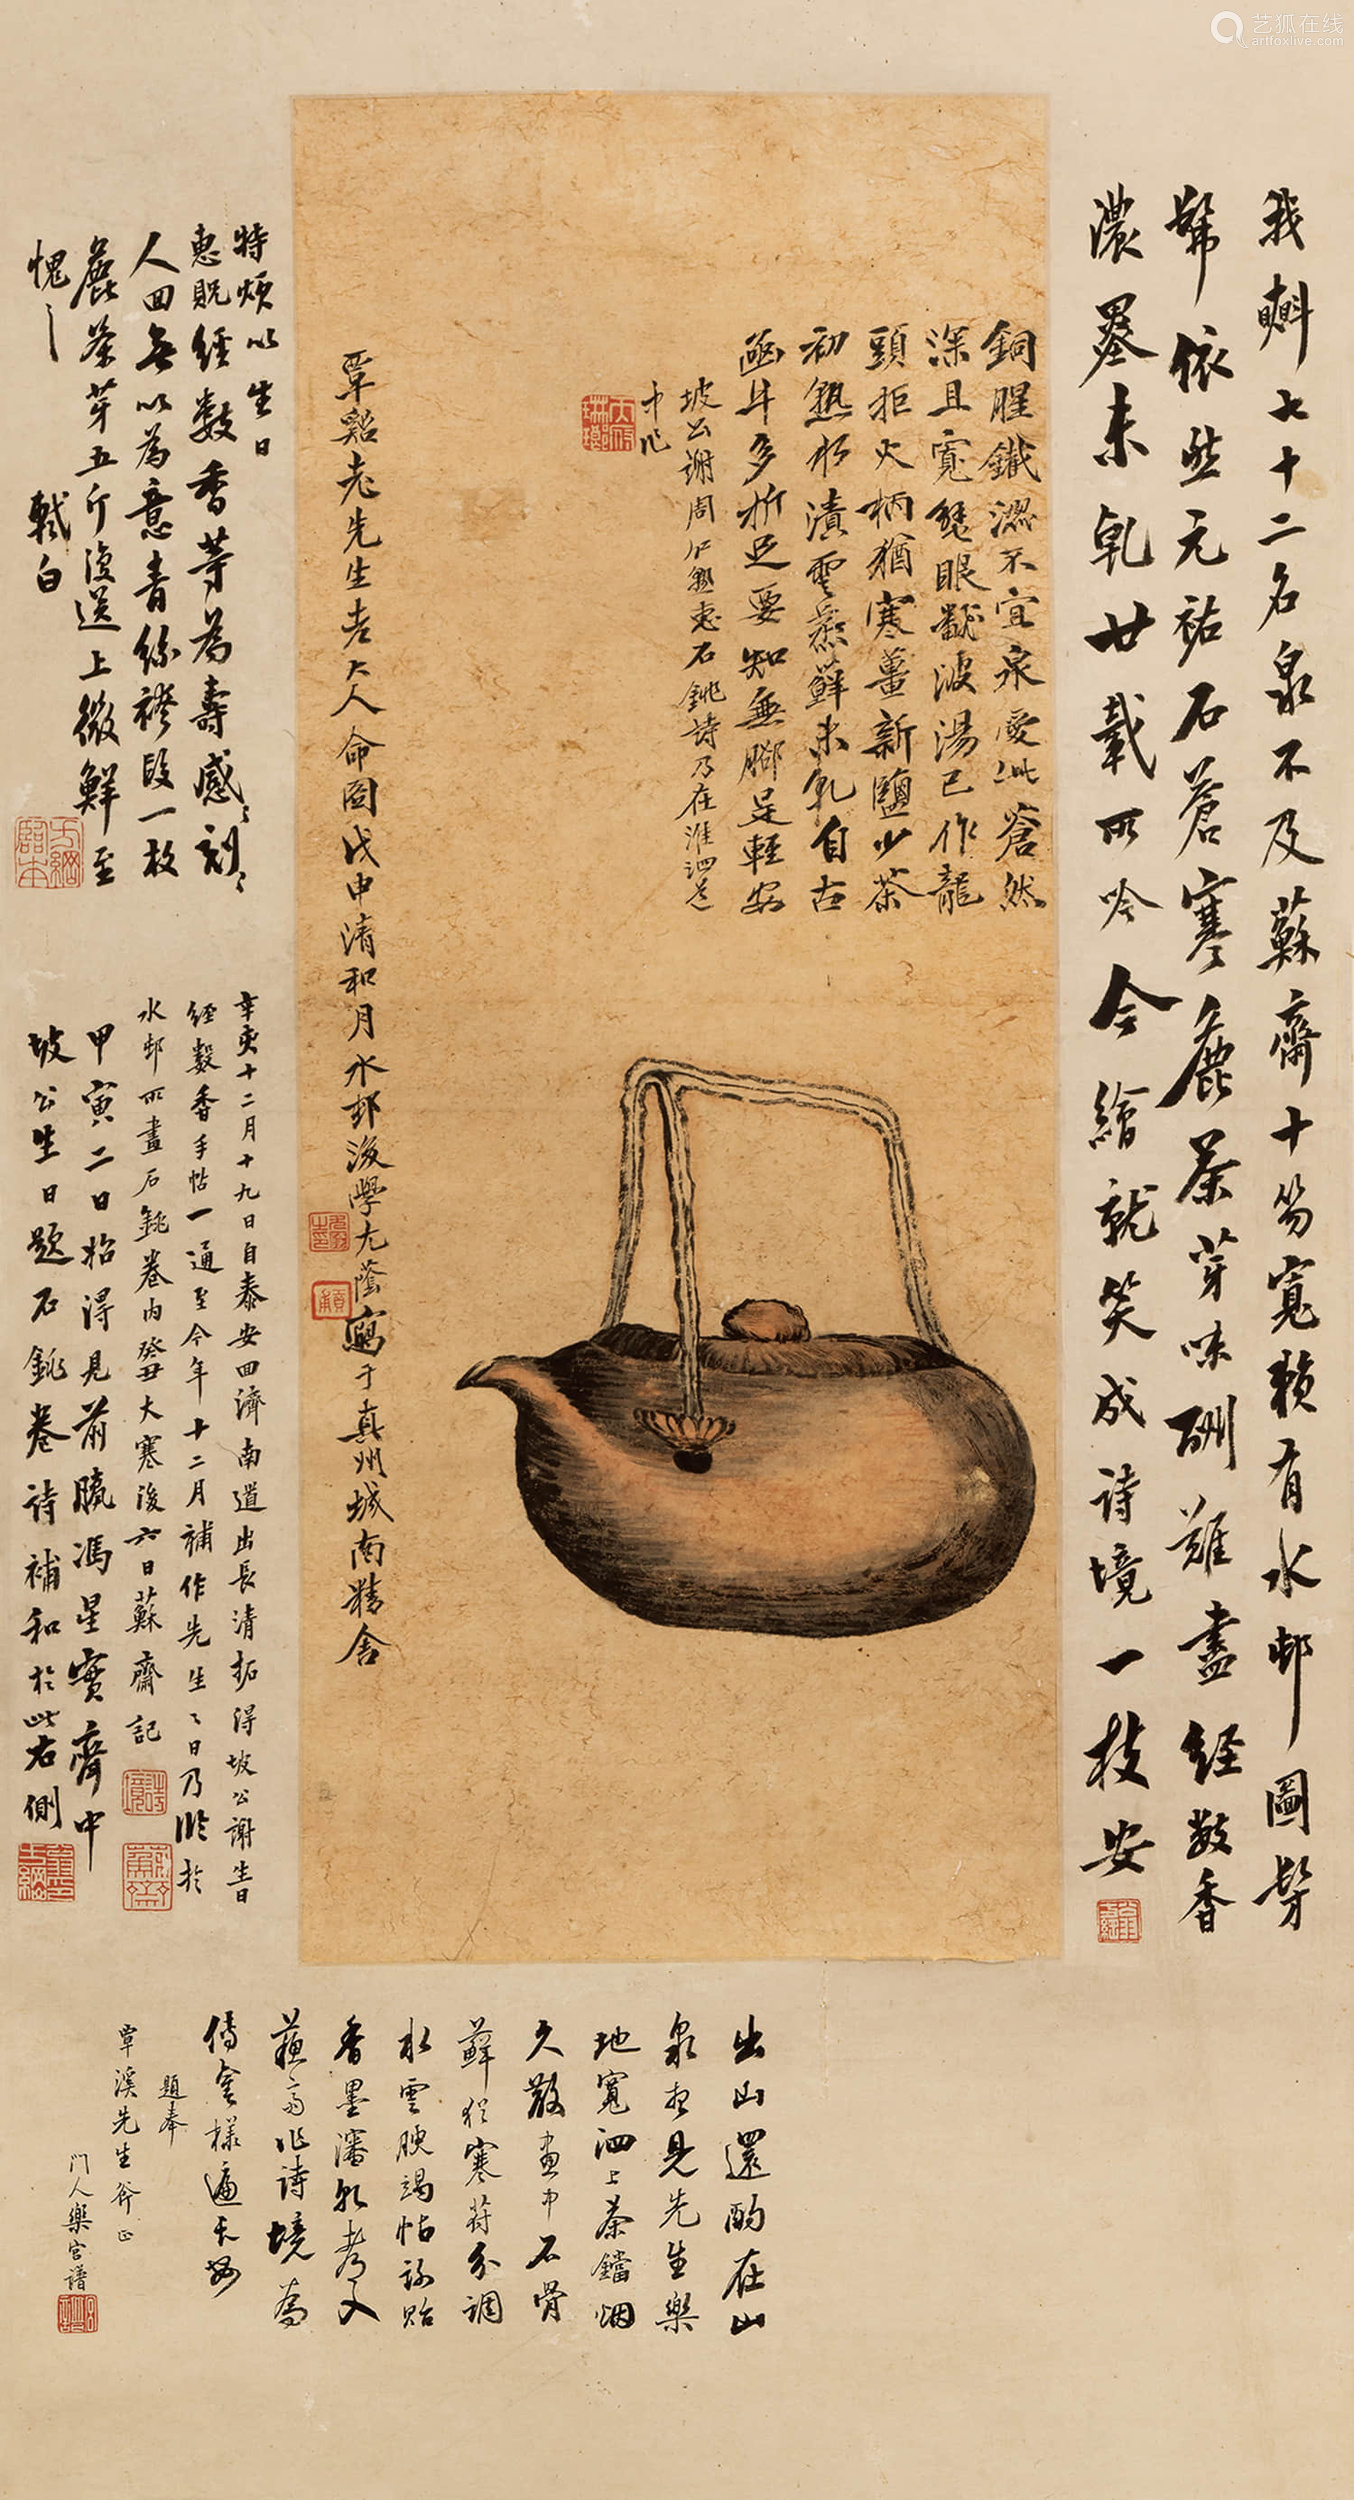 艺狐在线
artfoxlive.com
我斟七十二名泉不及蘇齋十笏寬賴有水邨圖髣
髴依然元祐石蒼寒麁茶芽味酬難盡經數香
濃墨未乾廿載所吟今繪就笑成詩境一枝安
銅腥鐵澀不宜泉愛此蒼然
深且寬蟹眼翻波湯已作龍
頭拒火柄猶寒薑新鹽少茶
初熟水漬雲蒸蘚未乾自古
函牛多折足要知無腳是輕安
坡公謝周仁熟惠石銚詩乃在淮泗
中作
覃谿老先生老大人命圖戊申清和月水邨後學尤蔭寫于真州城南精舍
特煩以生日
惠貺經數香等為壽感〻刻〻
人回無以為意青絲襟段一枚
麁茶芽五斤復送上微鮮至
愧〻　　軾白
辛亥十二月十九日自泰安回濟南道出長清拓得坡公謝生日
經數香手帖一通至今年十二月補作先生〻日乃臨於
水邨所畫石銚卷內癸丑大寒後六日蘇齋記
甲寅二日始得見前賸馮星實齋中
坡公生日題石銚卷詩補和於此右側
出山還酌在山
泉如見先生樂
地寬泗上茶鐺烟
久散畫中石骨
蘚猶寒符分調
水雲腴渴帖詠貽
香墨瀋乾考文
蘇高作詩境為
傳舍樣遍天
題奉
覃溪先生斧正
門人樂宮譜